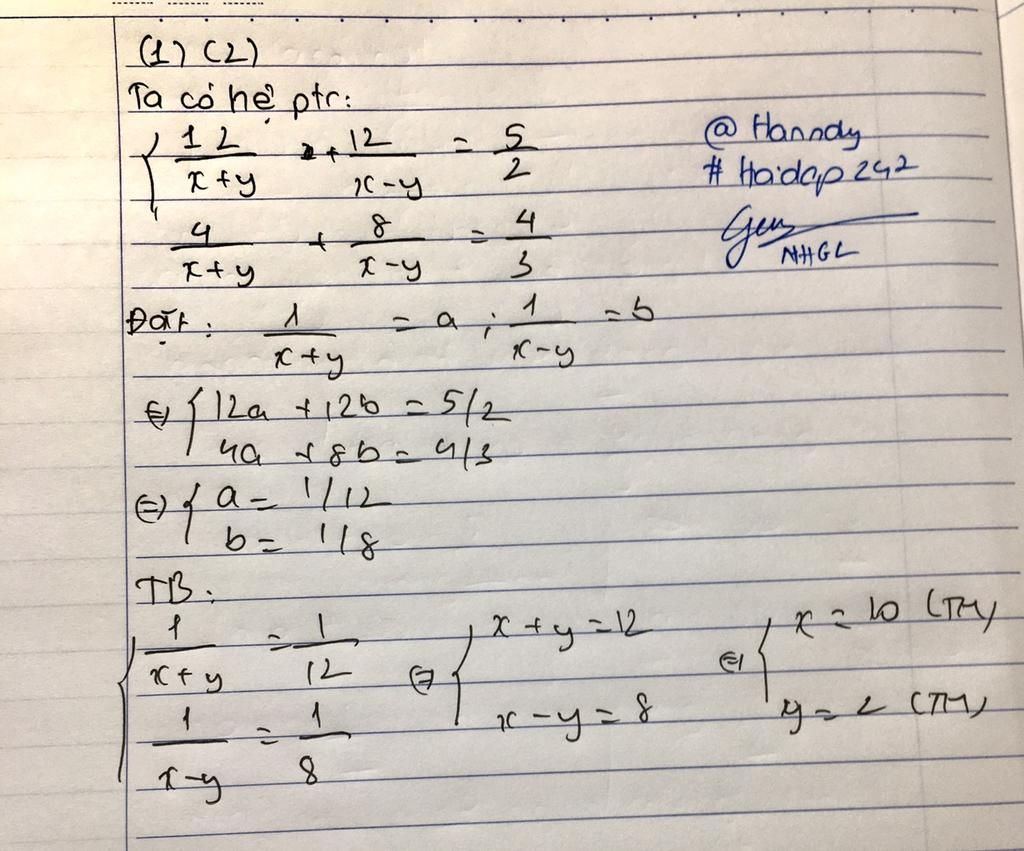 (1) (2)
Ta có hệ ptr:
12/(x+y) + 12/(x-y) = 5/2
4/(x+y) + 8/(x-y) = 4/3
@ Hanndy
# Hoidap242
NHGL
Đặt: 1/(x+y) = a ; 1/(x-y) = b
⇔ { 12a + 12b = 5/2
4a + 8b = 4/3
⇔ { a = 1/12
b = 1/8
TB:
{ 1/(x+y) = 1/12 ⇔ { x + y = 12 ⇔ { x = 10 (TM)
1/(x-y) = 1/8 x - y = 8 y = 2 (TM)